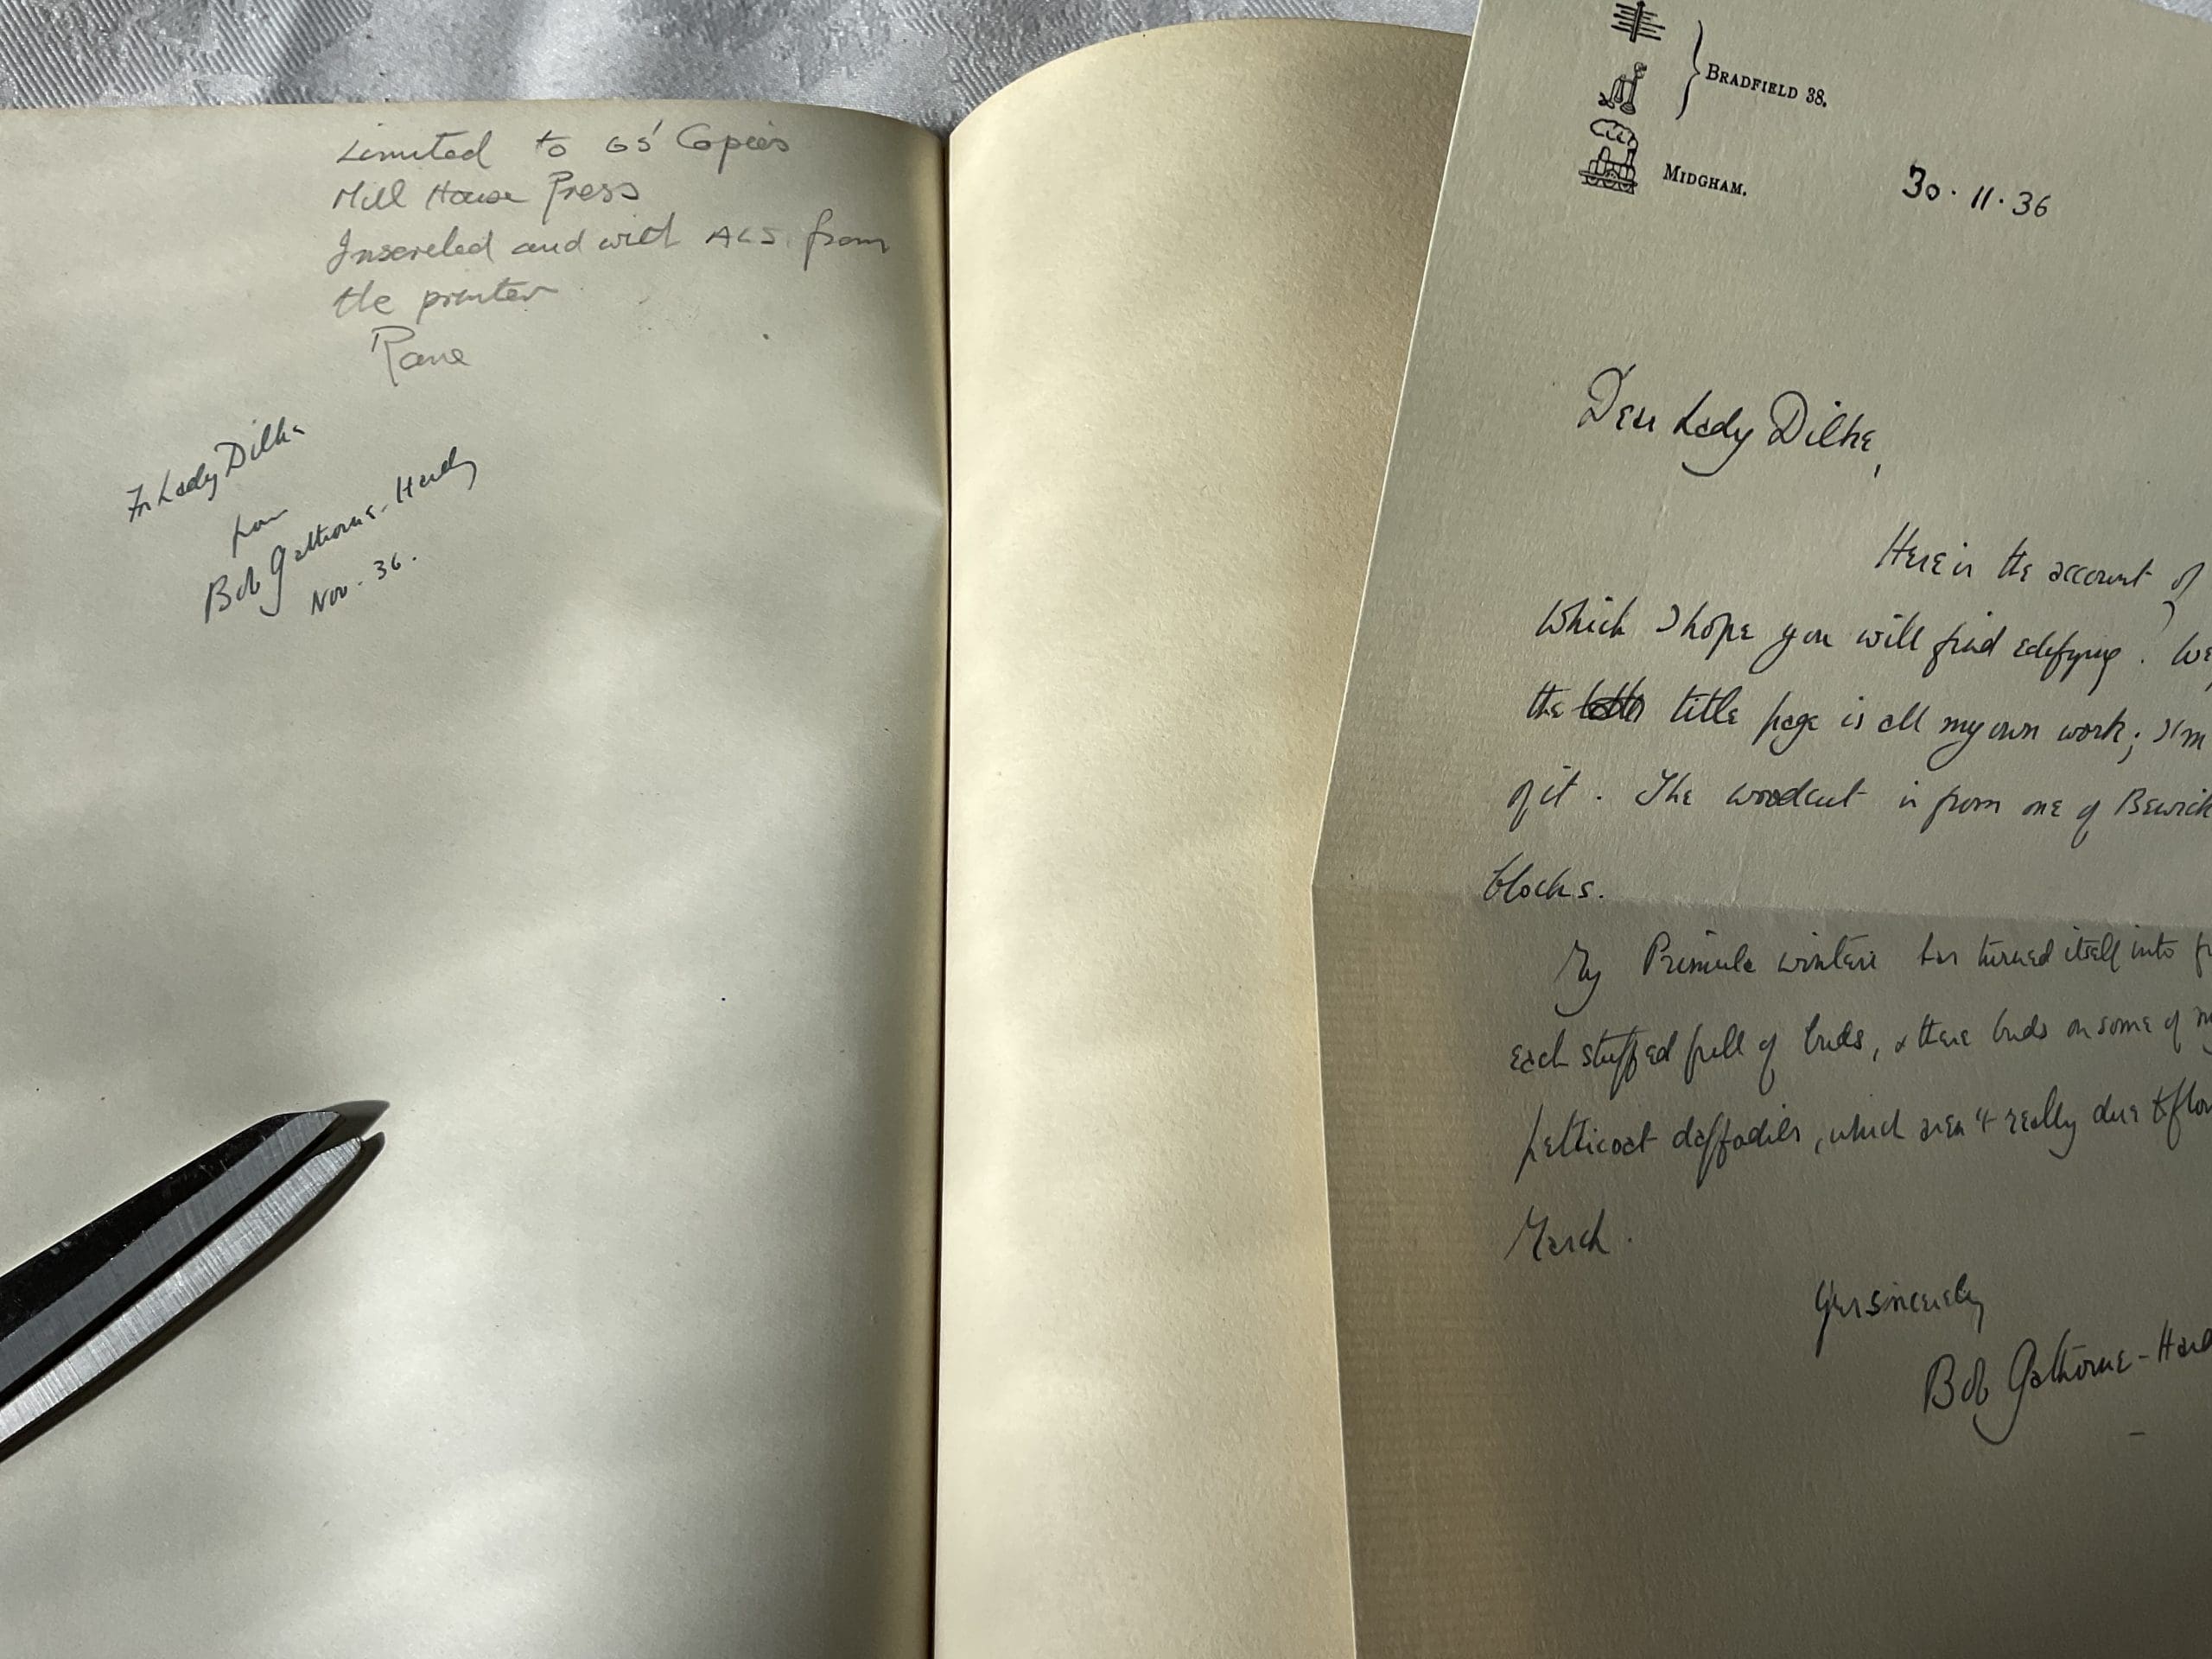 Limited to 65 Copies
Mill House Press
Inscribed and with ALS from
the printer
Rare
For Lady Dilke
from
Bob Gathorne-Hardy
Nov. 36.
} BRADFIELD 38.
MIDGHAM.
30·11·36
Dear Lady Dilke,
Here is the account of
which I hope you will find edifying.
the title page is all my own work; I'm
of it. The woodcut is from one of Bewick
blocks.
My Primula winteri has turned itself into
each stuffed full of buds, & there buds on some of my
petticoat daffodils, which aren't really due to
March.
Yours sincerely
Bob Gathorne-Hard